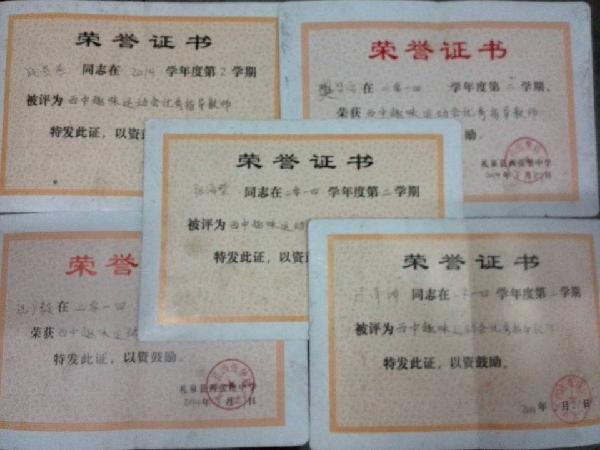 荣誉证书
同志在 2014 学年度第2学期
被评为西中趣味运动会优秀指导教师
特发此证，以资
荣誉证书
在二零一四 学年度第二学期，
荣获西中趣味运动会优秀指导教师
励。
礼泉县西张堡中学
荣誉证书
同志在二零一四 学年度第二学期
被评为西中趣味运动
特发此证，以资
荣誉
在二零一四
荣获西中趣味运动
特发此证，以资鼓励。
礼泉县西张堡中学
荣誉证书
同志在二零一四学年度第二学期
被评为西中趣味运动会优秀指导教师
特发此证，以资鼓励。